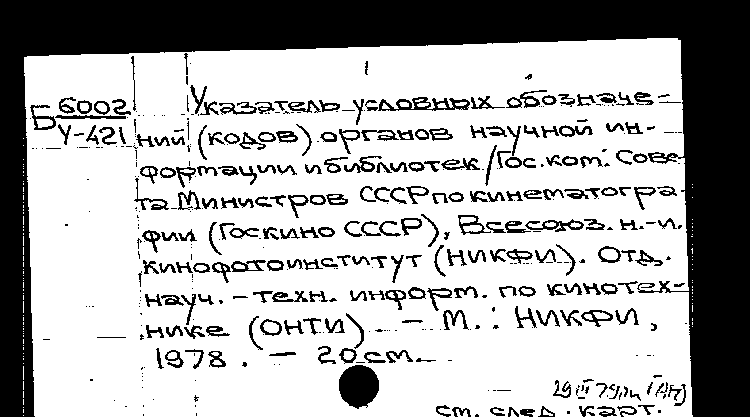 1
Б 6002
У-421
Указатель условных обозначе-
ний (кодов) органов научной ин-
формации и библиотек / Гос. ком. Сове-
та Министров СССР по кинематогра-
фии (Госкино СССР), Всесоюз. н.-и.
кинофотоинститут (НИКФИ). Отд.
науч.-техн. информ. по кинотех-
нике (ОНТИ). — М.: НИКФИ,
1978. — 20 см.
см. след. карт.